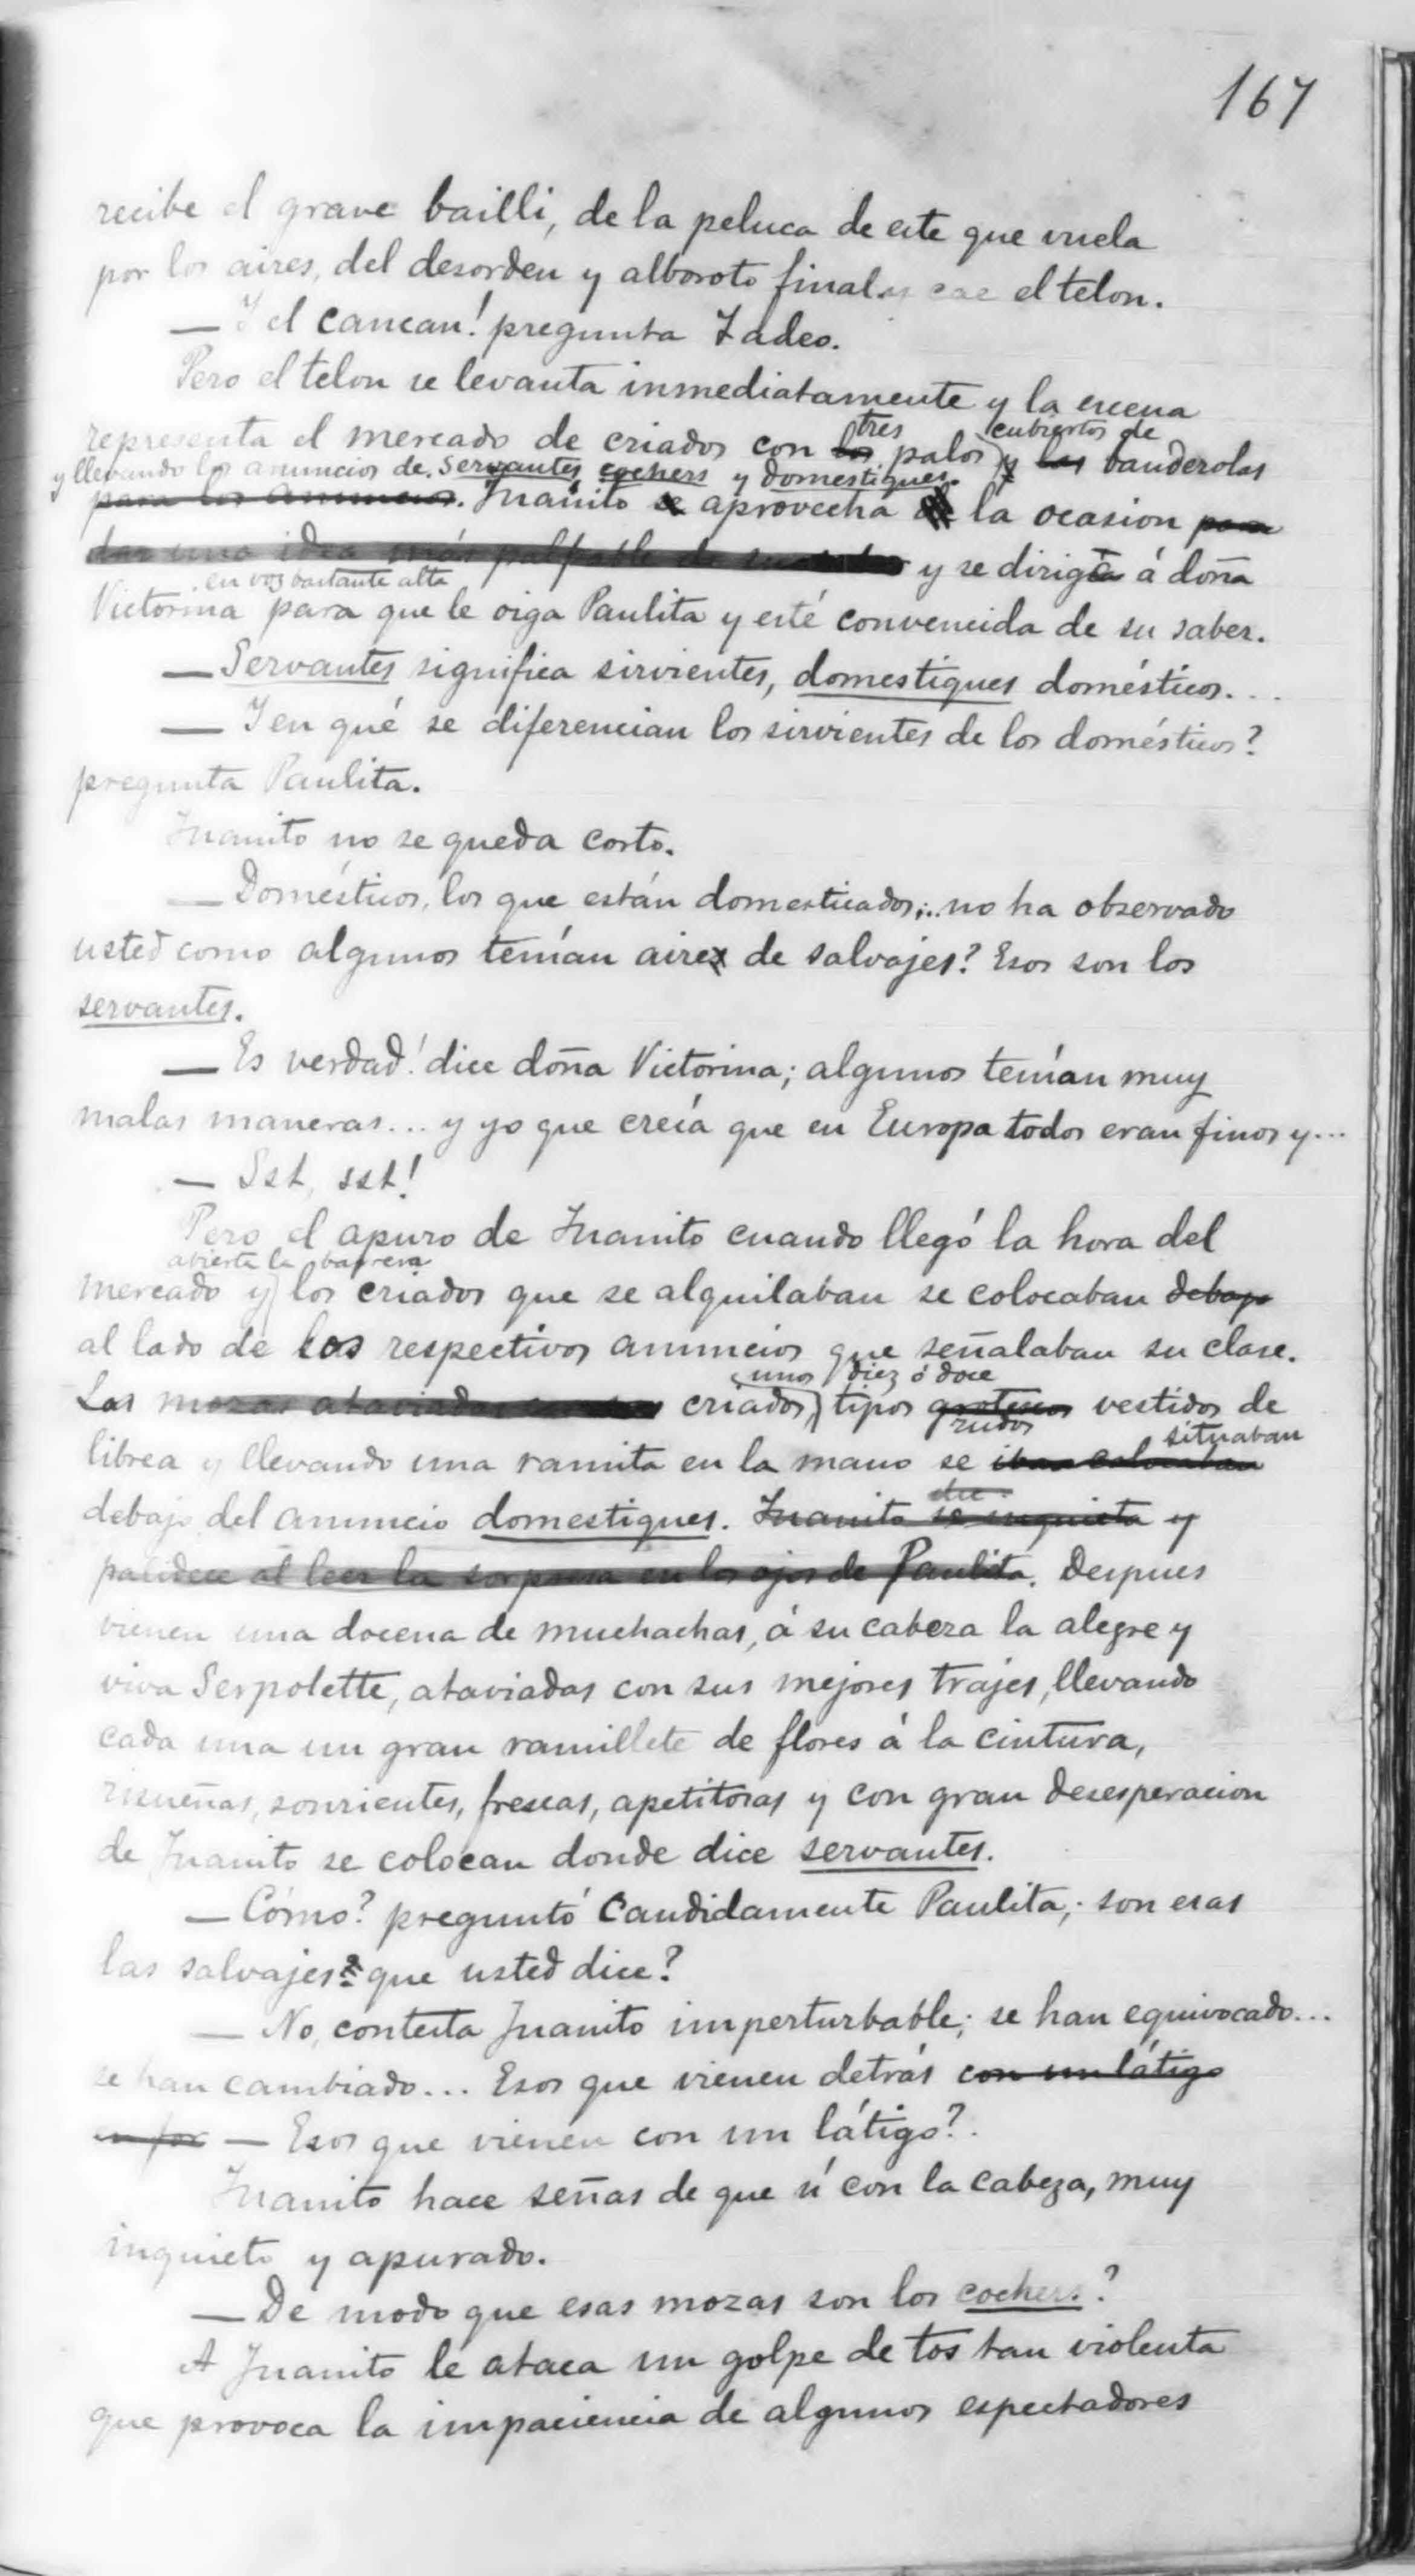 167
recibe el grave bailli, de la peluca de este que vuela
por los aires, del desorden y alboroto final y cae el telon.
— Y el cancan! pregunta Tadeo.
Pero el telon se levanta inmediatamente y la escena
tres cubiertos de
representa el mercado de criados con los palos y las banderolas
y llevando los anuncios de servantes, cochers y domestiques.
para los anuncios. Juanito se aprovecha la ocasion para
dar una idea más palpable de y se dirige á doña
en voz bastante alta
Victorina para que le oiga Paulita y esté convencida de su saber.
— Servantes significa sirvientes, domestiques domésticos...
— Y en qué se diferencian los sirvientes de los domésticos?
pregunta Paulita.
Juanito no se queda corto.
— Domésticos, los que están domesticados;.. no ha observado
usted como algunos tenían aire de salvajes? Esos son los
servantes.
— Es verdad! dice doña Victorina; algunos tenían muy
malas maneras... y yo que creía que en Europa todos eran finos y...
— Sst, sst!
Pero el apuro de Juanito cuando llegó la hora del
abierta la barrera
mercado y los criados que se alquilaban se colocaban debajo
al lado de los respectivos anuncios que señalaban su clase.
unos diez ó doce
Los mozos ataviados criados, tipos grotescos vestidos de
rudos
situaban
librea y llevando una ramita en la mano se iban colocaban
debajo del anuncio domestiques. Juanito se inquieta y
palidece al leer la sorpresa en los ojos de Paulita. Despues
vienen una docena de muchachas, á su cabeza la alegre y
viva Serpolette, ataviadas con sus mejores trajes, llevando
cada una un gran ramillete de flores á la cintura,
risueñas, sonrientes, frescas, apetitosas y con gran desesperacion
de Juanito se colocan donde dice servantes.
— Cómo? preguntó candidamente Paulita; son esas
las salvajes que usted dice?
— No, contesta Juanito imperturbable; se han equivocado...
se han cambiado... Esos que vienen detrás con un látigo
— Esos que vienen con un látigo?.
Juanito hace señas de que sí con la cabeza, muy
inquieto y apurado.
— De modo que esas mozas son los cochers?
A Juanito le ataca un golpe de tos tan violenta
que provoca la impaciencia de algunos espectadores